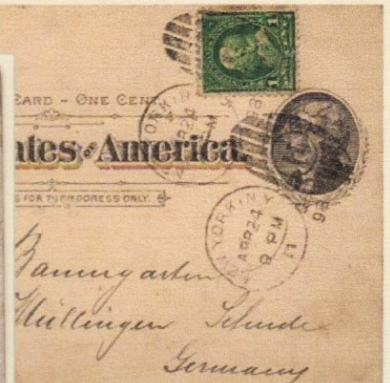 1
CARD - ONE CENT
ates of America.
S FOR THE ADDRESS ONLY.
YORK, N.Y
APR 24
PM
98
NEW YORK, N.Y
APR 24
9 PM
11
98
Baumgarten
Müllingen
Germany